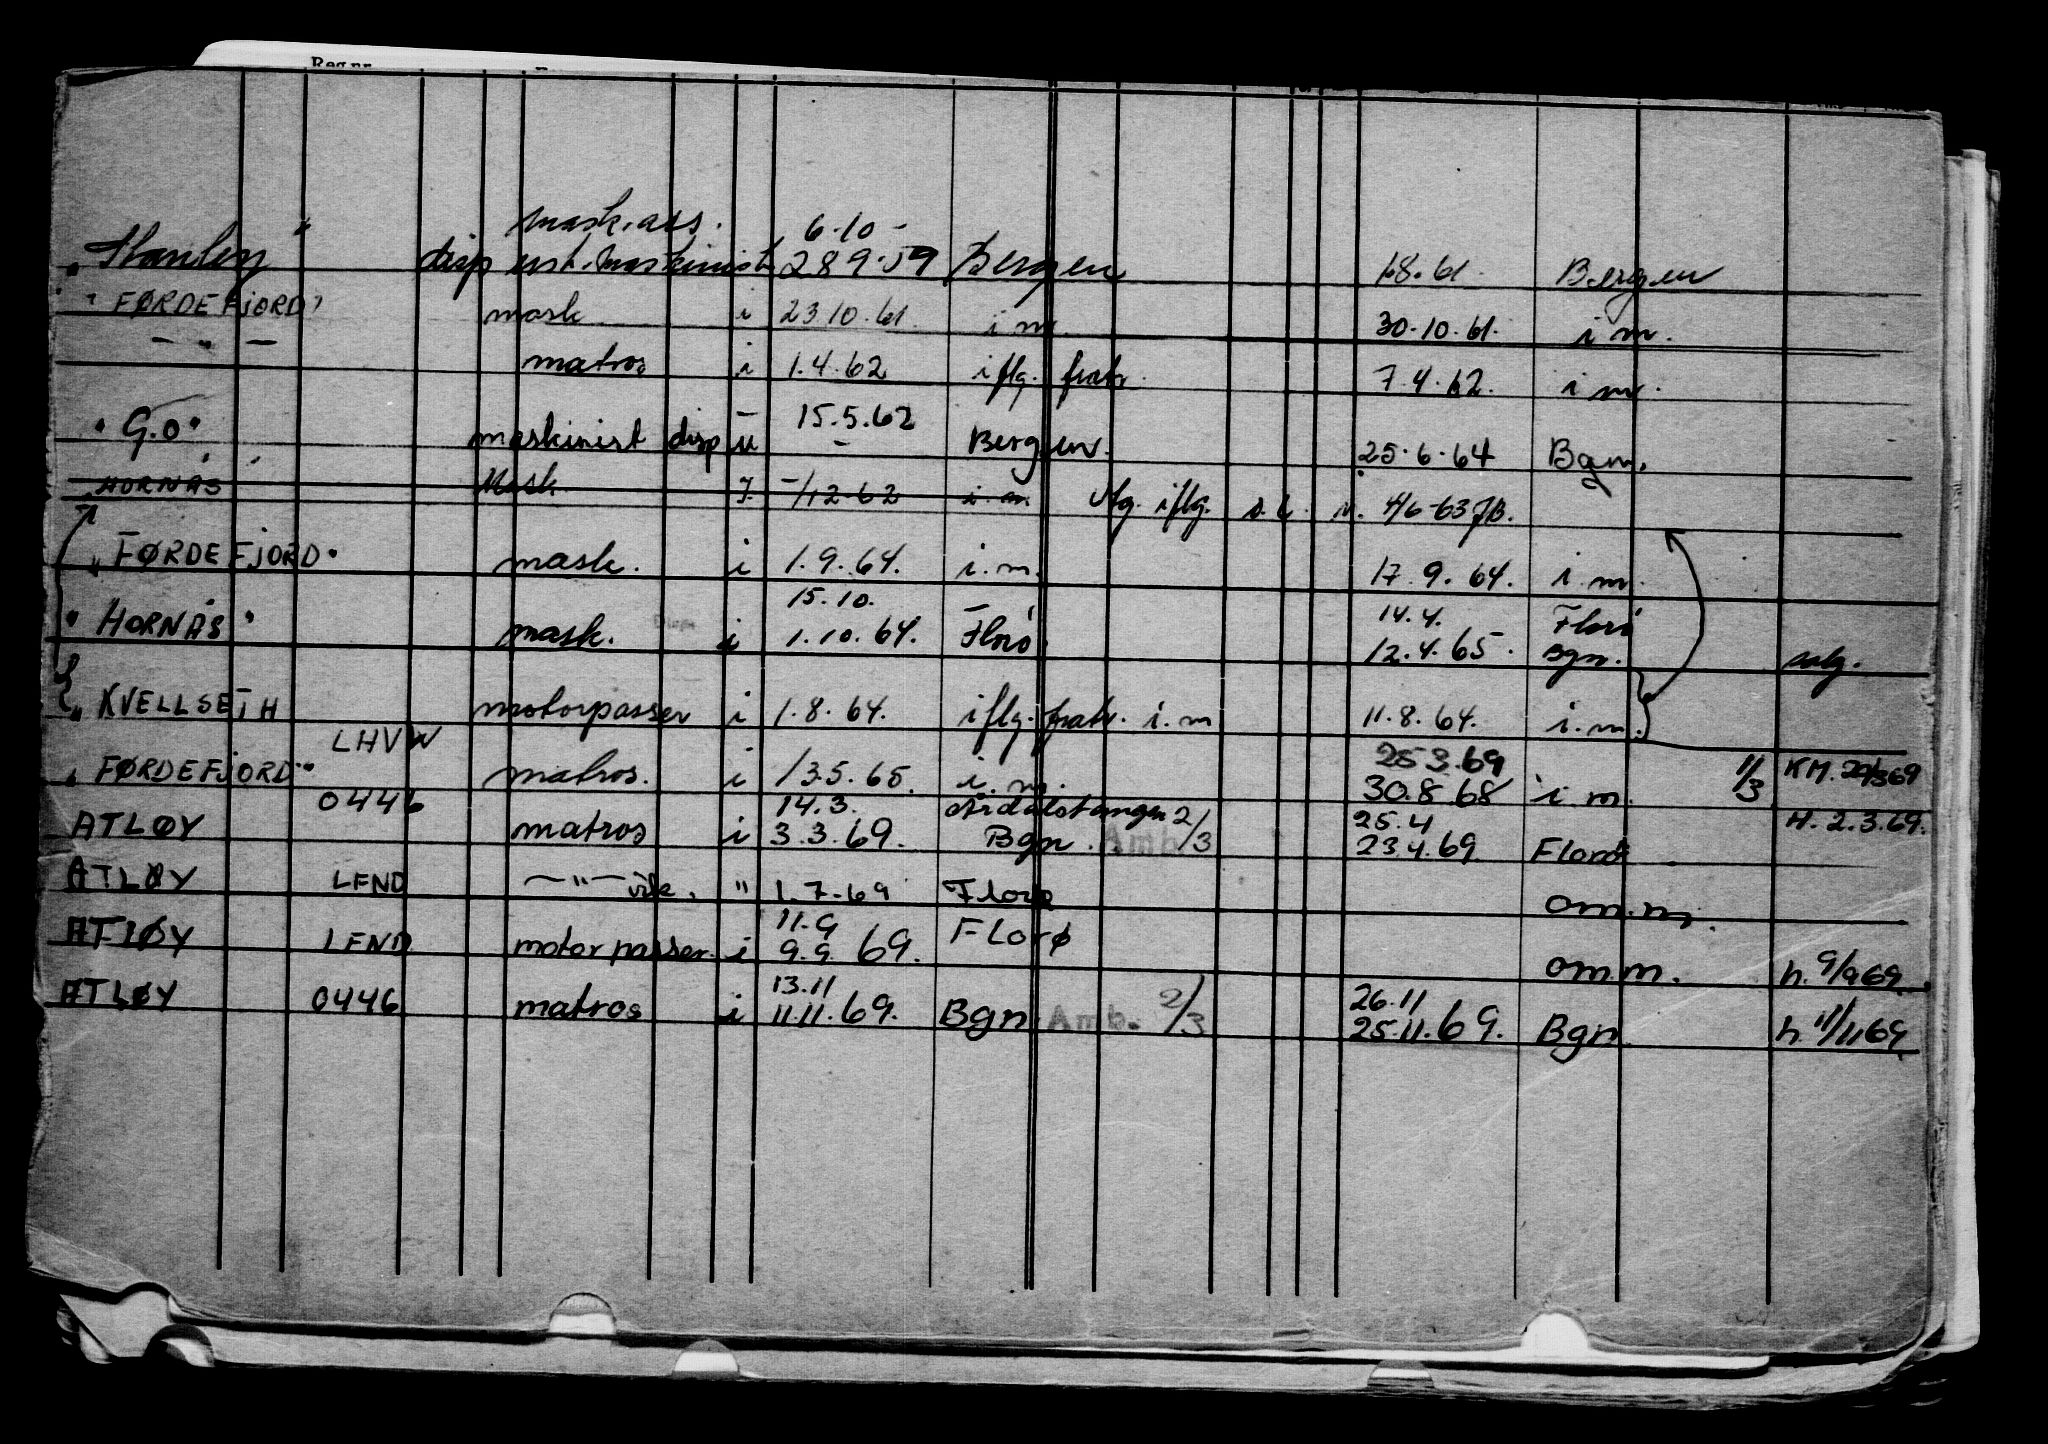 Reg.nr.
mask.ass. 6.10 -
"Stanley" disp usk. maskinist 28 9.59 Bergen 1.8.61. Bergen
"FØRDEFJORD" mask i 23.10.61. i m. 30.10.61. i m.
— " — matros i 1.4.62 iflg. frakr. 7.4.62. i m.
"G.O" maskinist disp u - 15.5.62 - Bergen. 25.6.64 Bgn.
HORNÅS Mask J. -/12-62 i. m. iflg. 4/6-63 JB.
"FØRDEFJORD" mask. i 1.9.64. i.m. 17.9.64. i.m.
15.10. 14.4. Florø
"HORNÅS" mask. i 1.10.64. Florø 12.4.65. Bgn. salg.
"KVELLSETH motorpasser i 1.8.64. iflg. frakr. i.m 11.8.64. i.m.
LHVW 25 3.69
"FØRDEFJORD" matros. i /3.5.65. i.m. 30.8.68 i m. 11/3 KM. 20/3 69
0446 14.3. Årdalstangen 25.4
ATLØY matros i 3.3.69. Bgn. Amb. 2/3 23.4.69 Florø H. 2.3.69.
ATLØY LEND — " — vik. " 1.7.69 Florø om.m.
11.9
ATLØY LEND motorpasser. i 9.9.69. Florø om.m. h. 9/9 69.
13.11 26.11
ATLØY 0446 matros i 11.11.69. Bgn Amb. 2/3 25.11.69. Bgn h. 11/11 69